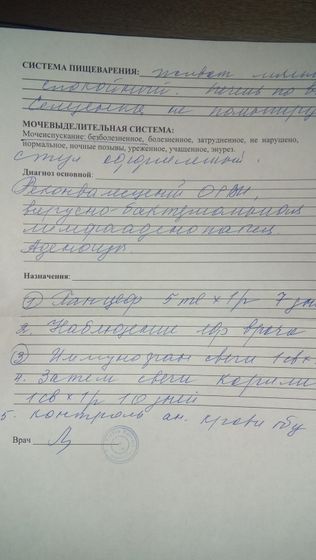 СИСТЕМА ПИЩЕВАРЕНИЯ: живот мягкий
спокойный. Печень по
Селезенка не
МОЧЕВЫДЕЛИТЕЛЬНАЯ СИСТЕМА:
Мочеиспускание: безболезненное, болезненное, затрудненное, не нарушено,
нормальное, ночные позывы, уреженное, учащенное, энурез.
стул оформленный.
Диагноз основной:
Реконвалесцент ОРВИ,
вирусно-бактериальная
лимфааденопатия
Аденоиды.
Назначения:
1 Панцеф 5 мл x 1р 7
2. Наблюдение лор врача
3 Иммунофан свечи 1св
4. Затем свечи
1св x 1р 10 дней
5. контроль ан. крови
Врач